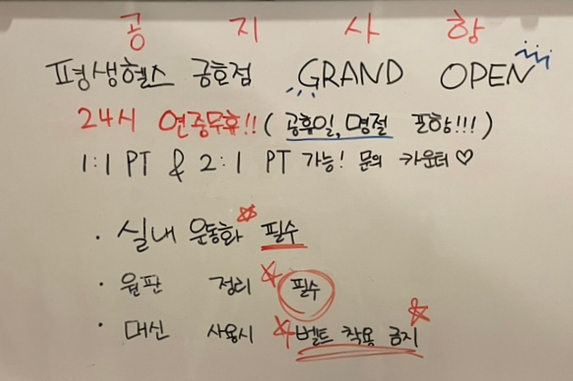 공 지 사 항
평생헬스 금호점 GRAND OPEN
24시 연중무휴!! (공휴일, 명절 포함!!!)
1:1 PT & 2:1 PT 가능! 문의 카운터♡
· 실내 운동화 필수
· 원판 정리 필수
· 머신 사용시 벨트 착용 금지